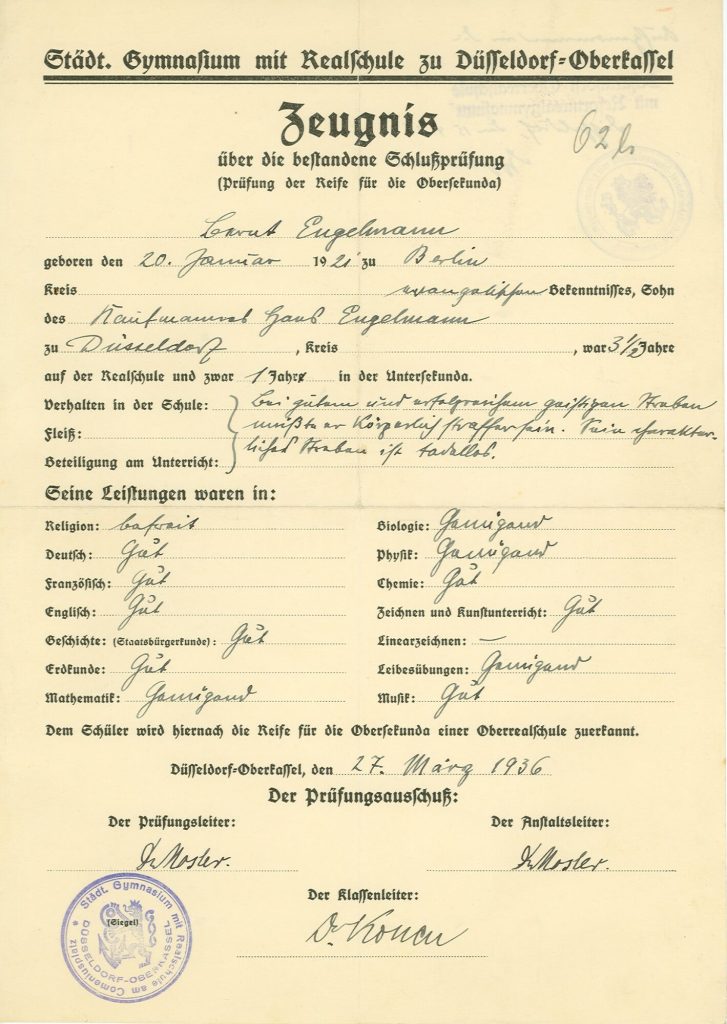 Städt. Gymnasium mit Realschule zu Düsseldorf-Oberkassel
Zeugnis
62 b
über die bestandene Schlußprüfung
(Prüfung der Reife für die Obersekunda)
Bernt Engelmann
geboren den 20. Januar 1921 zu Berlin
Kreis evangelischen Bekenntnisses, Sohn
des Kaufmannes Hans Engelmann
zu Düsseldorf, Kreis , war 3 1/2 Jahre
auf der Realschule und zwar 1 Jahr in der Untersekunda.
Verhalten in der Schule: Bei gutem und erfolgreichem geistigen Streben
Fleiß: müßte er körperlich straffer sein. Sein charakter-
Beteiligung am Unterricht: liches Streben ist tadellos.
Seine Leistungen waren in:
Religion: befreit
Deutsch: Gut
Französisch: Gut
Englisch: Gut
Geschichte: (Staatsbürgerkunde): Gut
Erdkunde: Gut
Mathematik: Genügend
Biologie: Genügend
Physik: Genügend
Chemie: Gut
Zeichnen und Kunstunterricht: Gut
Linearzeichnen: —
Leibesübungen: Genügend
Musik: Gut
Dem Schüler wird hiernach die Reife für die Obersekunda einer Oberrealschule zuerkannt.
Düsseldorf-Oberkassel, den 27. März 1936
Der Prüfungsausschuß:
Der Prüfungsleiter:
Dr Mosler.
Der Anstaltsleiter:
Dr Mosler.
Der Klassenleiter:
Dr Konen
Städt. Gymnasium mit Realschule am Comeniusplatz
DÜSSELDORF-OBERKASSEL
(Siegel)